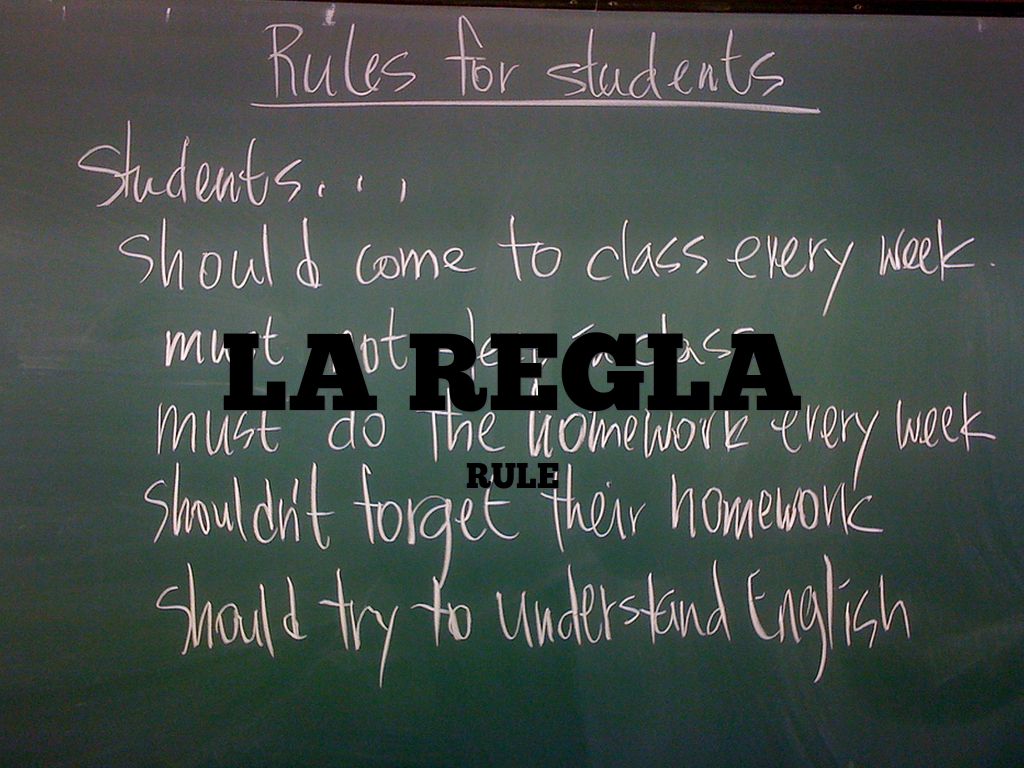 Rules for students
Students...
should come to class every week.
must not class
LA REGLA
must do the homework every week
RULE
shouldn't forget their homework
should try to understand English